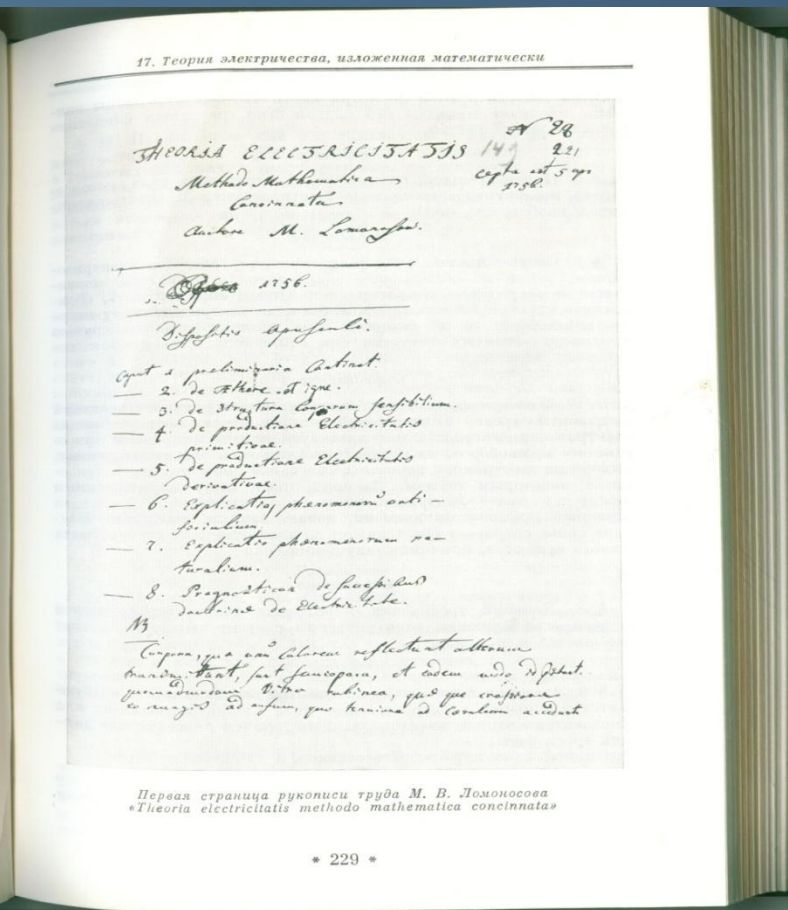 17. Теория электричества, изложенная математически
N 28
THEORIA ELECTRICITATIS 141 221
Methodo Mathematica cepta est 5 apr
Concinnata 1756.
Auctore M. Lomonosow.
1756.
Dispositio opusculi.
Caput 1 preliminaria Continet.
— 2. de Æthere et igne.
— 3. de Structura Corporum sensibilium.
— 4. De productione Electricitatis
primitivae.
— 5. De productione Electricitatis
derivativae.
— 6. Explicatio phænomenorũ arti-
ficialium.
— 7. Explicatio phænomenorum na-
turalium.
— 8. Prognostica de successibus
doctrinæ de Electricitate.
NB
Corpora, quæ unũ Colorem reflectunt alterum
transmittant, sunt, et eodem modo
quemadmodum Vitra rubinea, quo crassiora
eo magis ad, quo teniora ad accedunt
Первая страница рукописи труда М. В. Ломоносова
«Theoria electricitatis methodo mathematica concinnata»
* 229 *